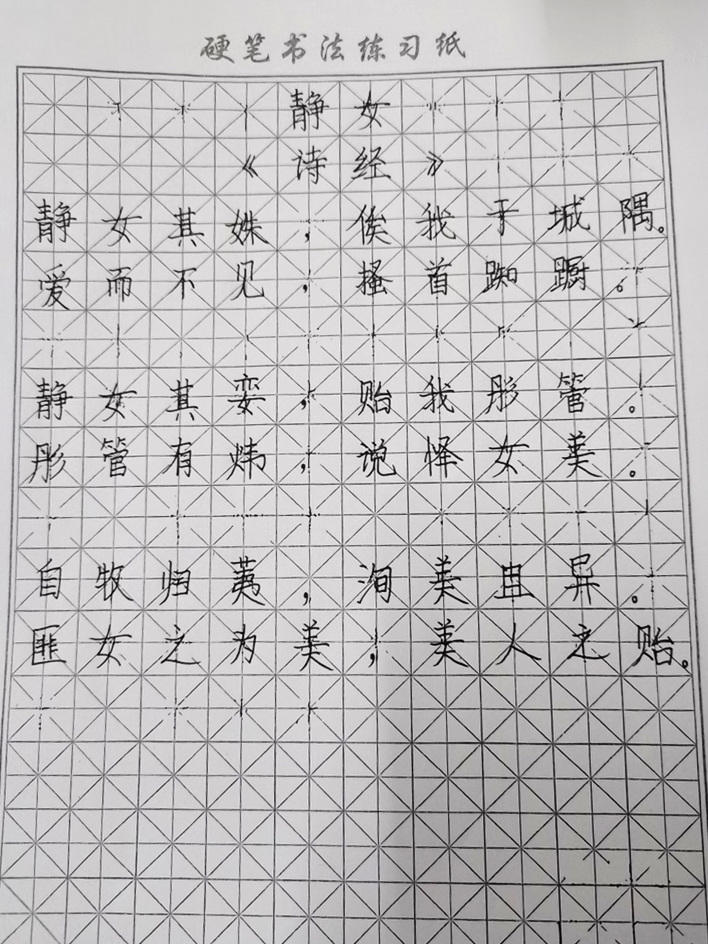 硬笔书法练习纸
静女
《诗经》
静女其姝，俟我于城隅。
爱而不见，搔首踟蹰。
静女其娈，贻我彤管。
彤管有炜，说怿女美。
自牧归荑，洵美且异。
匪女之为美，美人之贻。